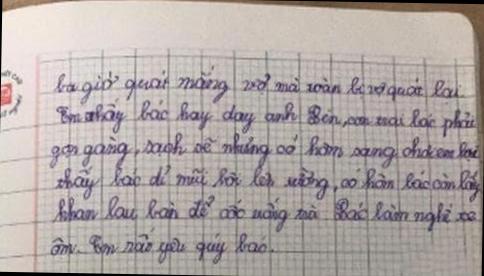 ba giờ quát mắng vợ mà toàn bị vợ quát lại.
Em thấy bác hay dạy anh Bin, con trai bác phải
gọn gàng, sạch sẽ nhưng có hôm sang chơi em lại
thấy bác dí mũi hôi lên tường, có hôm bác còn lấy
khăn lau bàn để cốc uống mà Bác làm nghề xe
ôm. Em rất yêu quý bác.